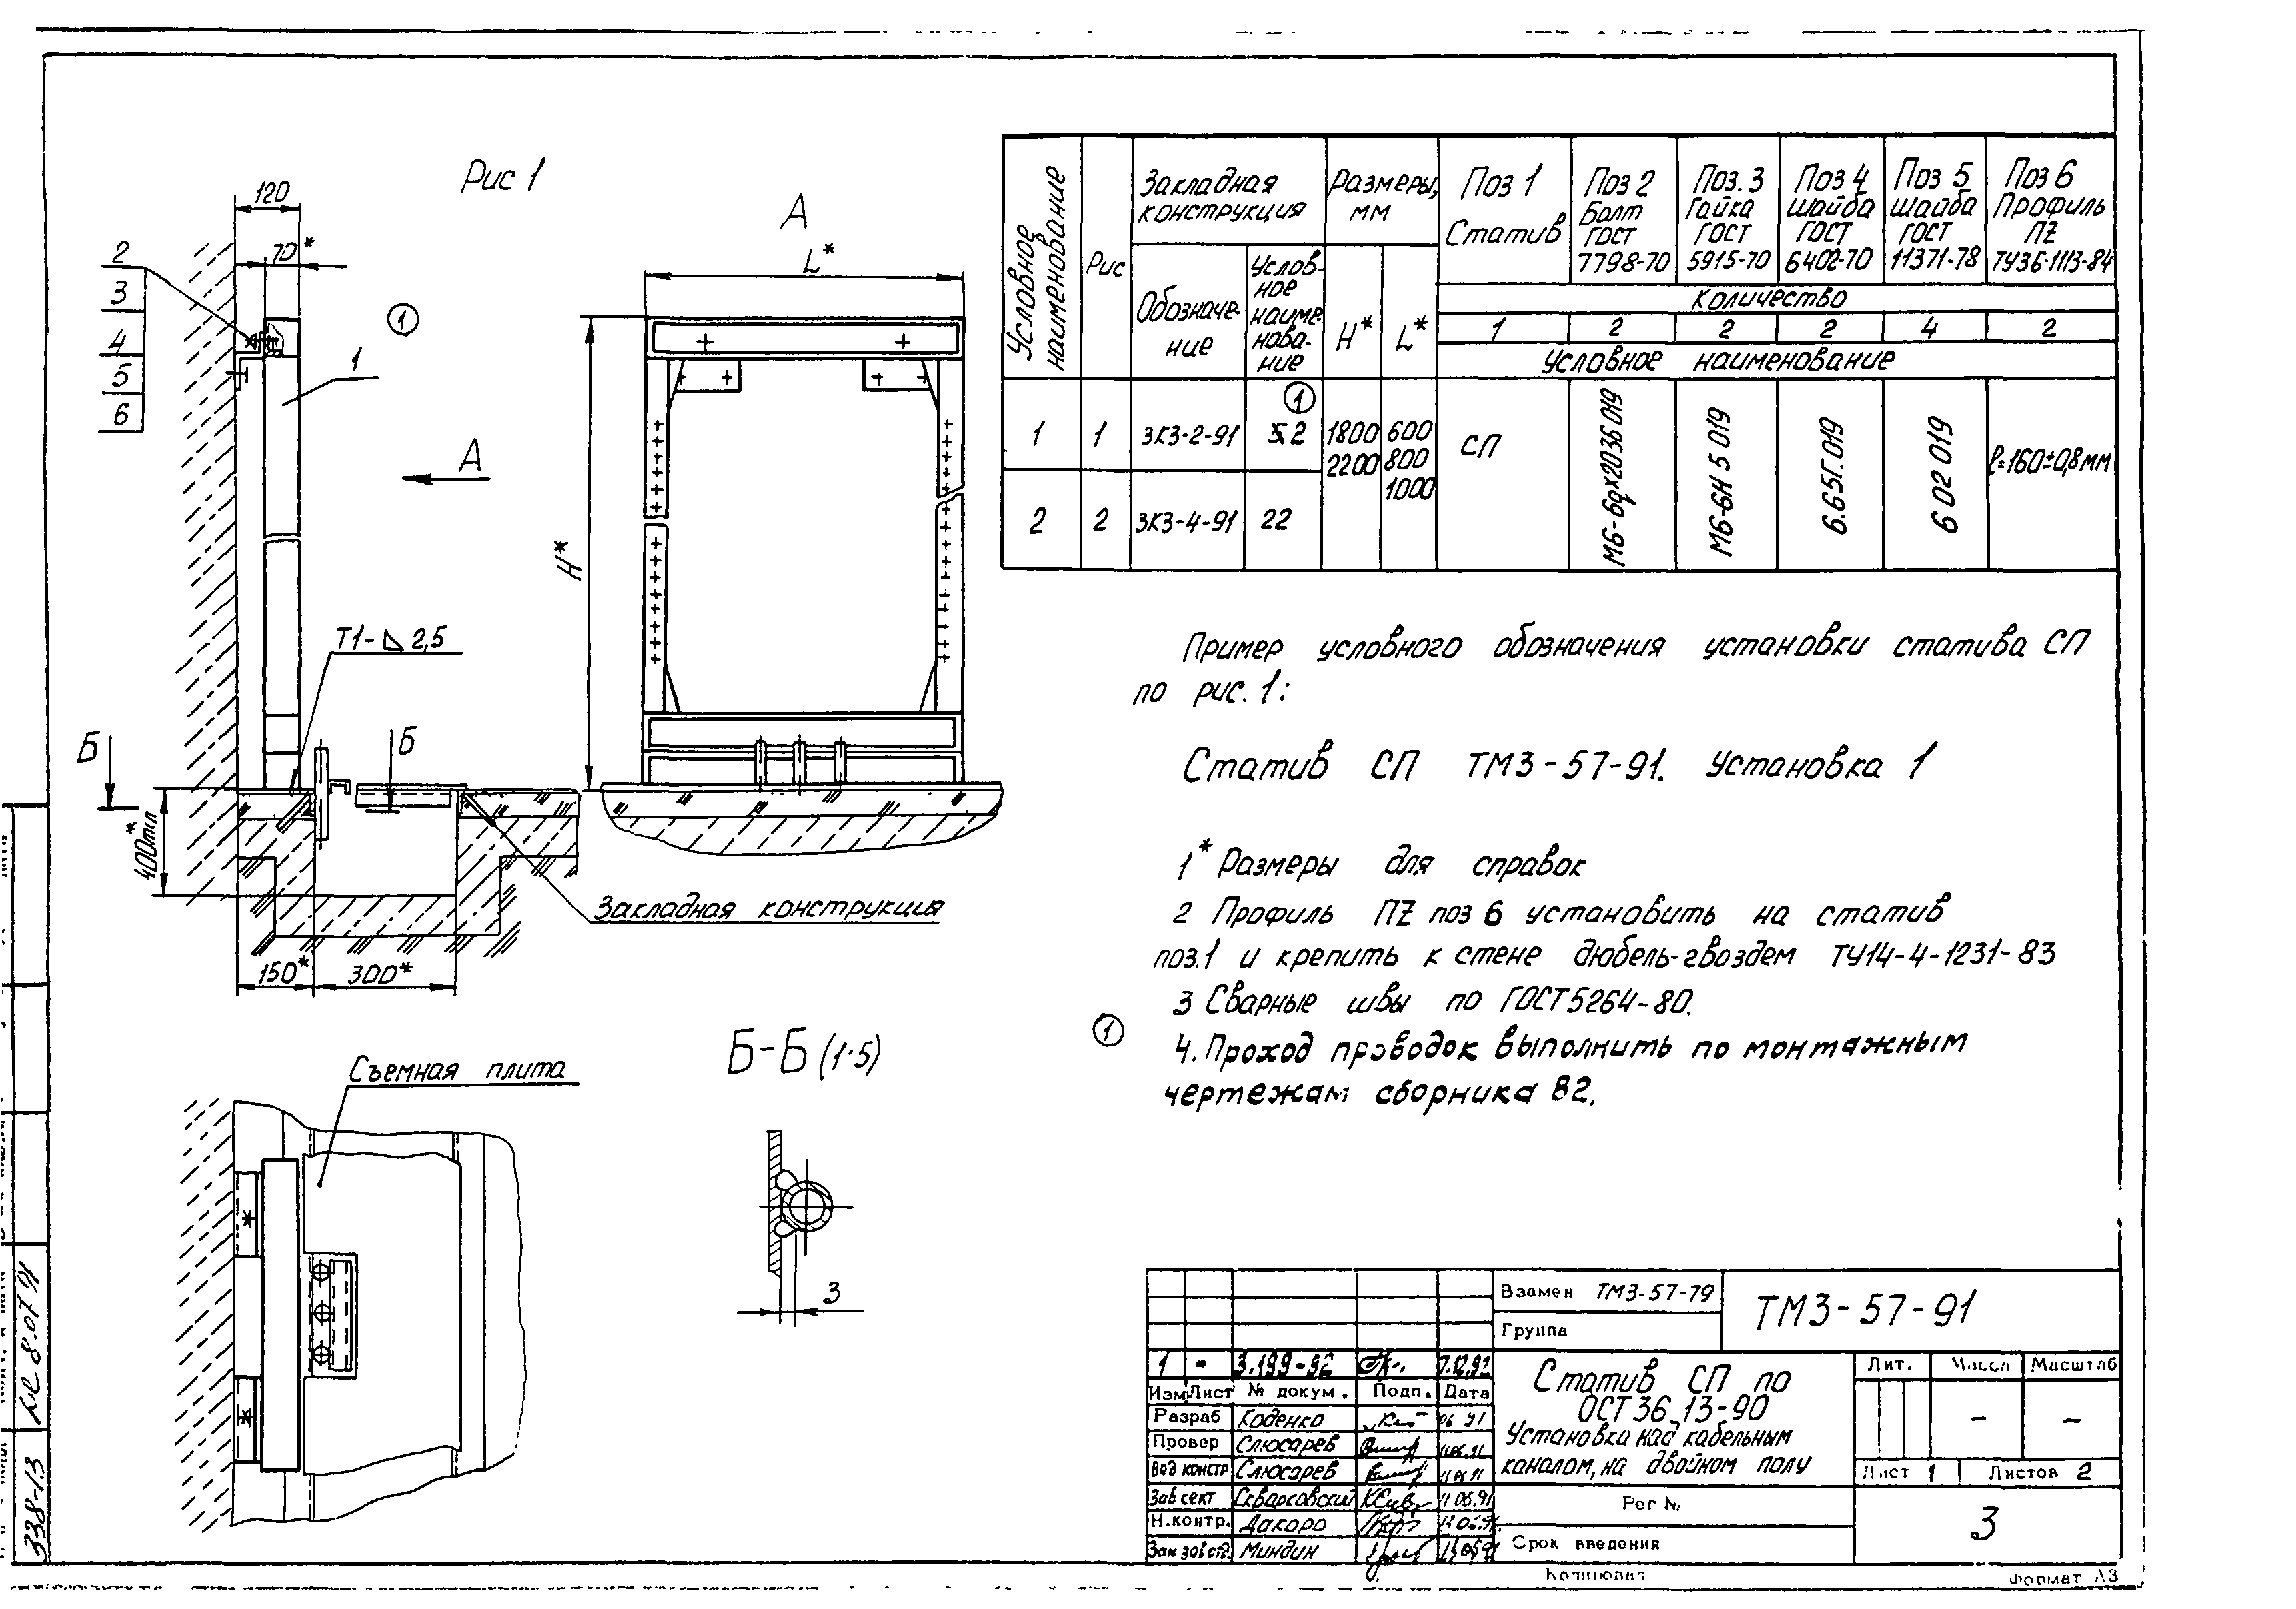 Рис 1
120
70*
2
3
4
5
6
1
1
А
Т1-⊿2,5
Б
Б
400min*
150*
300*
Закладная конструкция
А
L*
H*
Съемная плита
Б-Б (1:5)
3
Условное наименование
Рис
Закладная конструкция
Обозначе-
ние
Услов-
ное
наиме-
нова-
ние
Размеры,
мм
H*
L*
Поз 1
Статив
Поз 2
Болт
ГОСТ
7798-70
Поз. 3
Гайка
ГОСТ
5915-70
Поз 4
шайба
ГОСТ
6402-70
Поз 5
шайба
ГОСТ
11371-78
Поз 6
Профиль
ПZ
ТУ36-1113-84
Количество
1 2 2 2 4 2
Условное наименование
1
1 1 ЗК3-2-91 2
2 2 ЗК3-4-91 22
1800
2200
600
800
1000
СП
М6-6gх2036 019
М6-6Н 5 019
6.65Г.019
6 02 019
ℓ=160±0,8мм
Пример условного обозначения установки статива СП
по рис. 1:
Статив СП ТМ3-57-91. Установка 1
1* Размеры для справок
2 Профиль ПZ поз 6 установить на статив
поз.1 и крепить к стене дюбель-гвоздем ТУ14-4-1231-83
3 Сварные швы по ГОСТ 5264-80.
1
4. Проход проводок выполнить по монтажным
чертежам сборника В2.
Взамен ТМ3-57-79
ТМ3-57-91
Группа
1 - 3.199-92 7.12.92
Изм Лист № докум. Подп. Дата
Разраб Коденко 06 91
Провер Слюсарев 11.06.91
Вед констр Слюсарев
Зав сект Скварковский 11 06.91
Н.контр. Дакоро
Зам зав отд. Миндин
Статив СП по
ОСТ 36.13-90
Установка над кабельным
каналом, на двойном полу
Лит. Масса Масштаб
- -
Лист 1 Листов 2
Рег №
Срок введения
3
Копировал
Формат А3
8.07 91
338-13